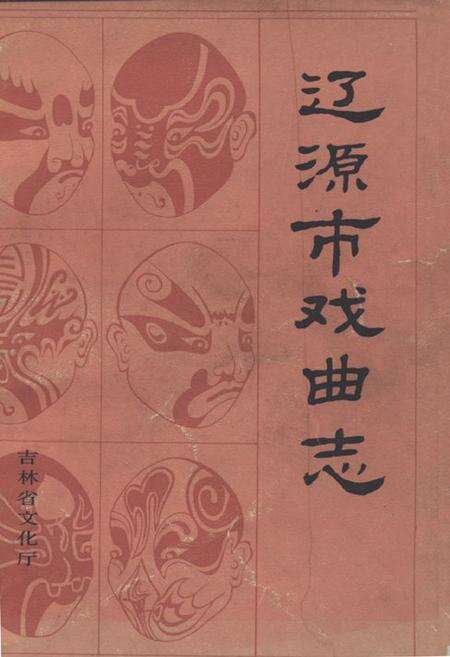 辽源市戏曲志
吉林省文化厅